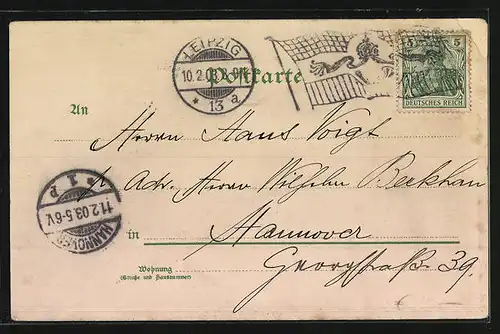 LEIPZIG
10.2.03
* 13 a.
5 5
DEUTSCHES REICH
Postkarte
An
Herrn Hans Voigt
p. Adr. Herrn Wilhelm Beckhan
in Hannover
Georgstraße 39.
Wohnung
(Straße und Hausnummer)
HANNOVER
11.2.03.5-6V.
* 1 p